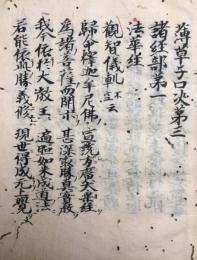 薄草子口决第三
諸経部第一
法華経
觀智儀軌云
歸命釋迦牟尼佛 宣説方廣大乗経
為諸菩薩而開示 甚深最勝真實教
我今依於大教王 遍照如来成道法
若能依此勝義修 現世得成无上覺